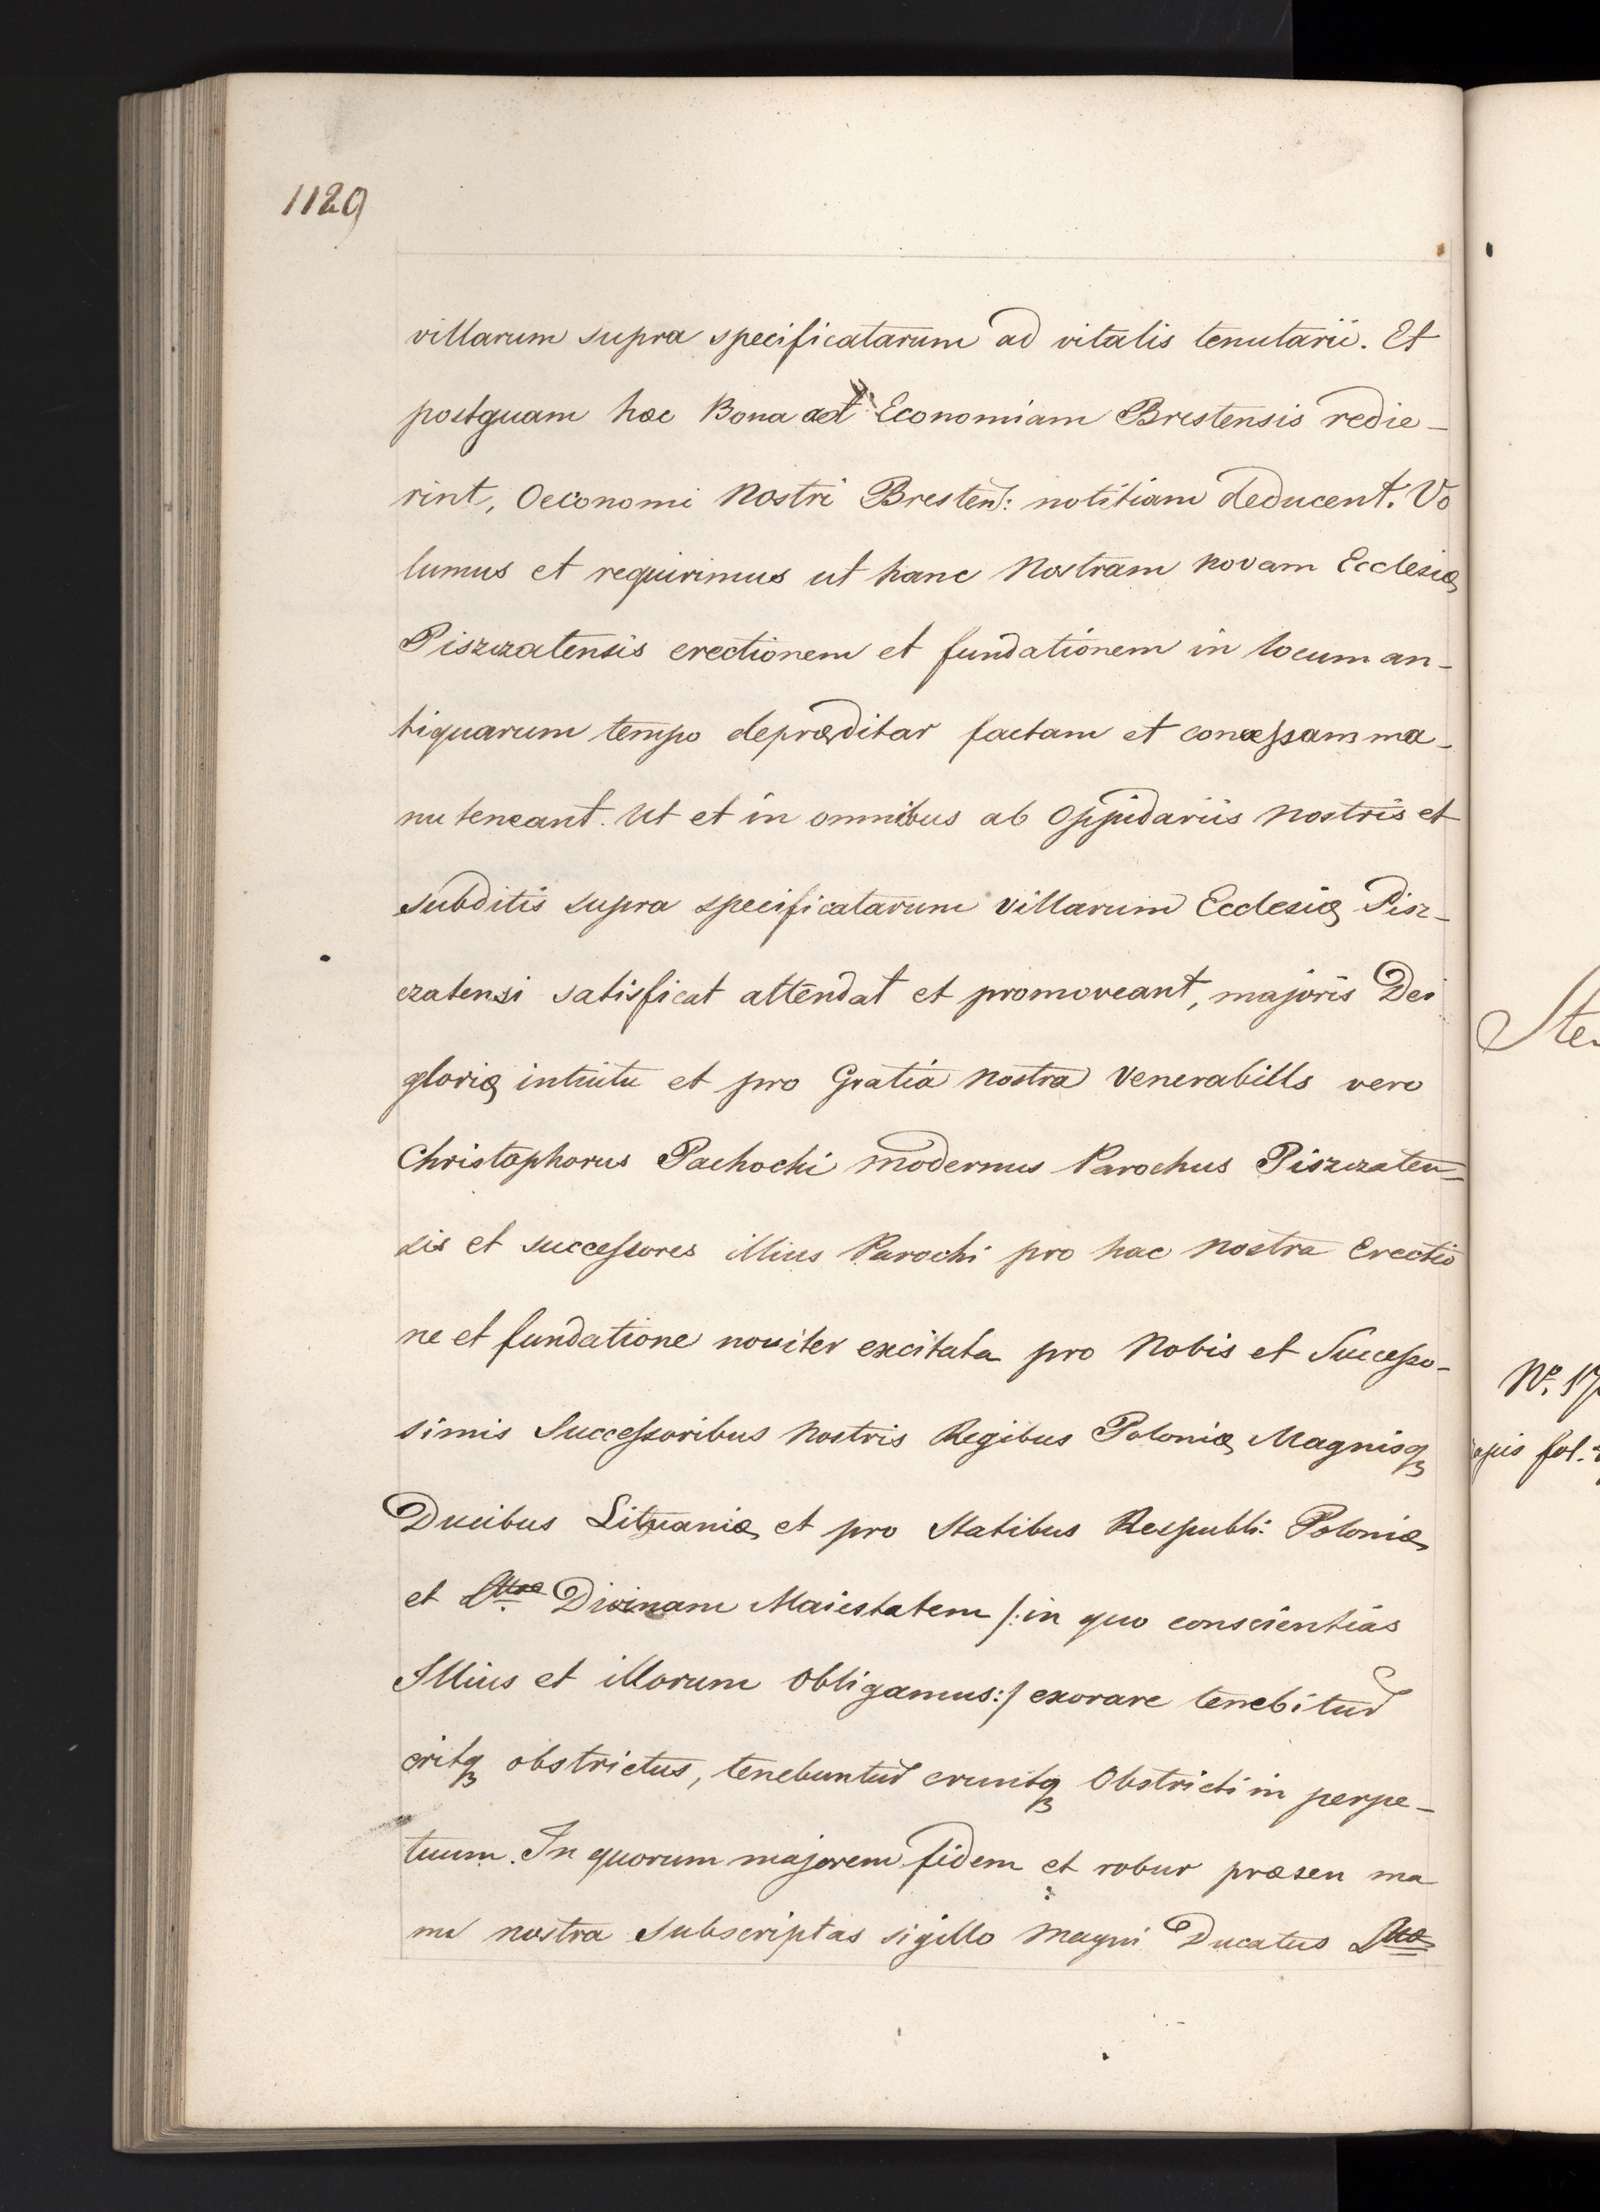 1129
villarum supra specificatarum ad vitalis tenutarii. Et
postquam hæc Bona ad Economiam Brestensis redie-
rint, Oeconomi Nostri Bresten: notitiam deducent. Vo
lumus et requirimus ut hanc Nostram novam Ecclesiæ
Piszczatensis erectionem et fundationem in locum an-
tiquarum tempo depræditar factam et concessam ma-
nuteneant. Ut et in omnibus ab Oppidariis Nostris et
subditis supra specificatarum villarum Ecclesiæ Pisz-
czatensi satisficat attendat et promoveant, majoris Dei
gloriæ intuitu et pro Gratia Nostra Venerabills vero
Christophorus Pachocki modernus Parochus Piszczaten=
sis et successores illius Parochi pro hac Nostra Erectio
ne et fundatione noviter excitata pro Nobis et Successo-
simis Successoribus Nostris Regibus Poloniæ Magnisq
Ducibus Lituaniæ et pro Statibus Respubli: Poloniæ
et Divinam Maiestatem /: in quo conscientias
Illius et illorum Obligamus :/ exorare tenebitur
eritq obstrictus, tenebuntur eruntq Obstricti in perpe-
tuum. In quorum majorem fidem et robur præsen ma
nu nostra subscriptas sigillo Magni Ducatus
Ste
No. 17
fol.